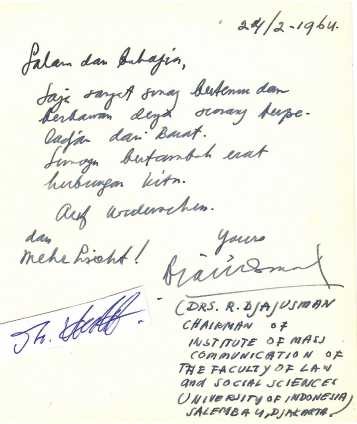 24/2-1964.
Salam dan bahagia,
Saja sangat senang bertemu dan
berkawan dengan seorang berpe-
ladjar dari Barat.
Semoga bertambah erat
hubungan kita.
Auf wiedersehen.
dan
Mehr Licht!
Yours
(DRS. R. DJAJUSMAN
CHAIRMAN OF
INSTITUTE OF MASS
COMMUNICATION OF
THE FACULTY OF LAW
and SOCIAL SCIENCES
UNIVERSITY OF INDONESIA,
SALEMBA 4, DJAKARTA.)